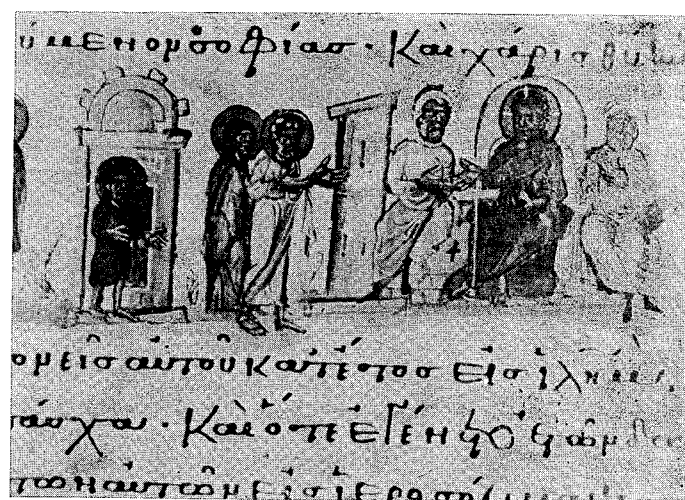 ύμενον σοφίας · Καὶ χάρις θῡ
ονεῖς αὐτοῦ κατέτος εἰς ἱλημ
πάσχα · Καὶ ὅτε ἐγένετο ἐτῶν
των αὐτῶν εἰς ἱεροσό